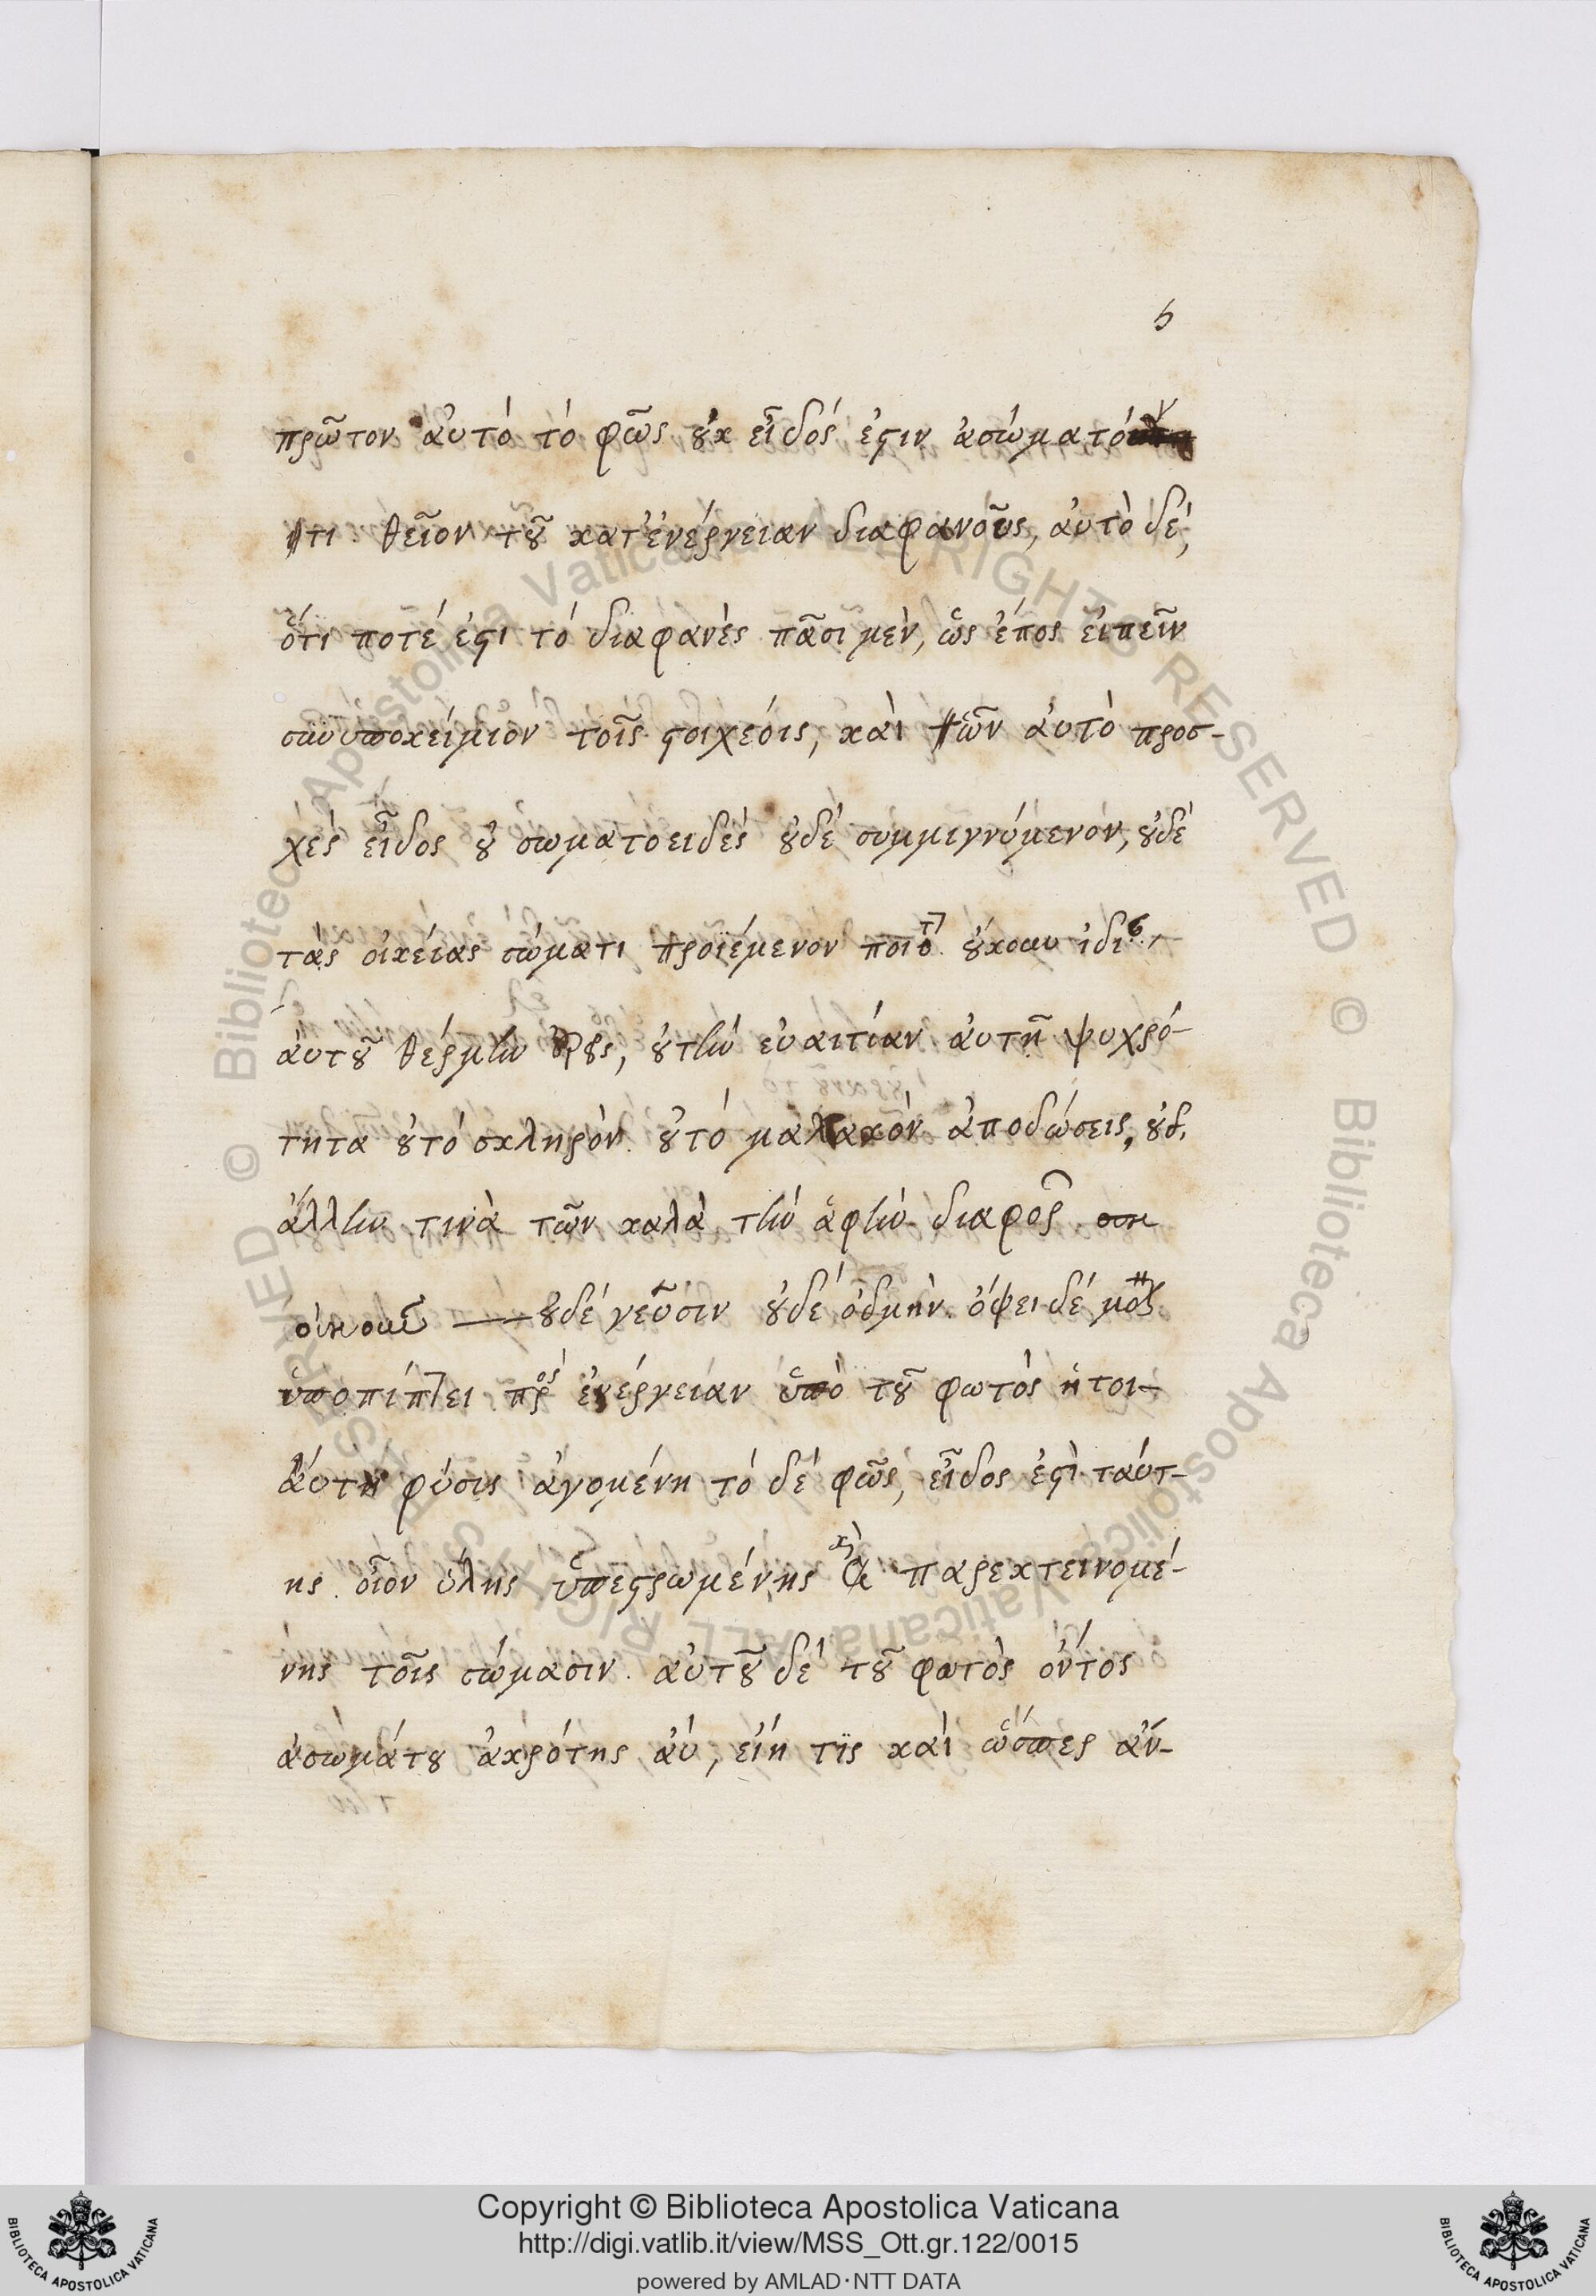 6
πρῶτον αὐτό τό φῶς οὐκ εἶδός ἐστιν ἀσώματόν
τι θεῖον τοῦ κατ' ἐνέργειαν διαφανοῦς, ἀυτὸ δέ,
ὅτι ποτέ ἐστι τό διαφανὲς πᾶσι μεν, ὥς ἔπος εἰπεῖν
συνϋποκείμιόν τοῖς στοιχέοις, καὶ ὧν ἀυτὸ προσ-
χές εἶδος οὐ σωματοειδές οὐδέ συμμιγνύμενόν, οὐδέ
τάς οἰκείας σώματι προϊέμενον
ἀυτοῦ θέρμην οὐτήν ἐυαιτίαν ἀυτῆ ψυχρό-
τητα οὐτό σκληρὸν οὐτό μαλακὸν ἀποδώσεις, οὐδ.
ἄλλην τινὰ τῶν καλὰ τήν ἁφήν
οὐδέ γεῦσιν οὐδέ ὀδμὴν. ὄψει δέ
ὑποπίπτει πρός ἐνέργειάν ὑπὸ τοῦ φωτός ἡτοι-
άυτη φύσις ἀγομένη τό δέ φῶς, εἶδος ἐστὶ ταύτ-
ης. οἷον ὕλης ὑπεστρωμένης καὶ παρεκτεινομέ-
νης τοῖς σώμασιν. αὐτοῦ δέ τοῦ φωτὸς ὄντος
ἀσωμάτου ἀκρότης ἀύ, εἴη τϊς καὶ ὥσπερ ἀν-
Copyright © Biblioteca Apostolica Vaticana
http://digi.vatlib.it/view/MSS_Ott.gr.122/0015
powered by AMLAD·NTT DATA
BIBLIOTECA APOSTOLICA VATICANA
BIBLIOTECA APOSTOLICA VATICANA
© Biblioteca Apostolica Vaticana ALL RIGHTS RESERVED © Biblioteca Apostolica Vaticana ALL RIGHTS RESERVED